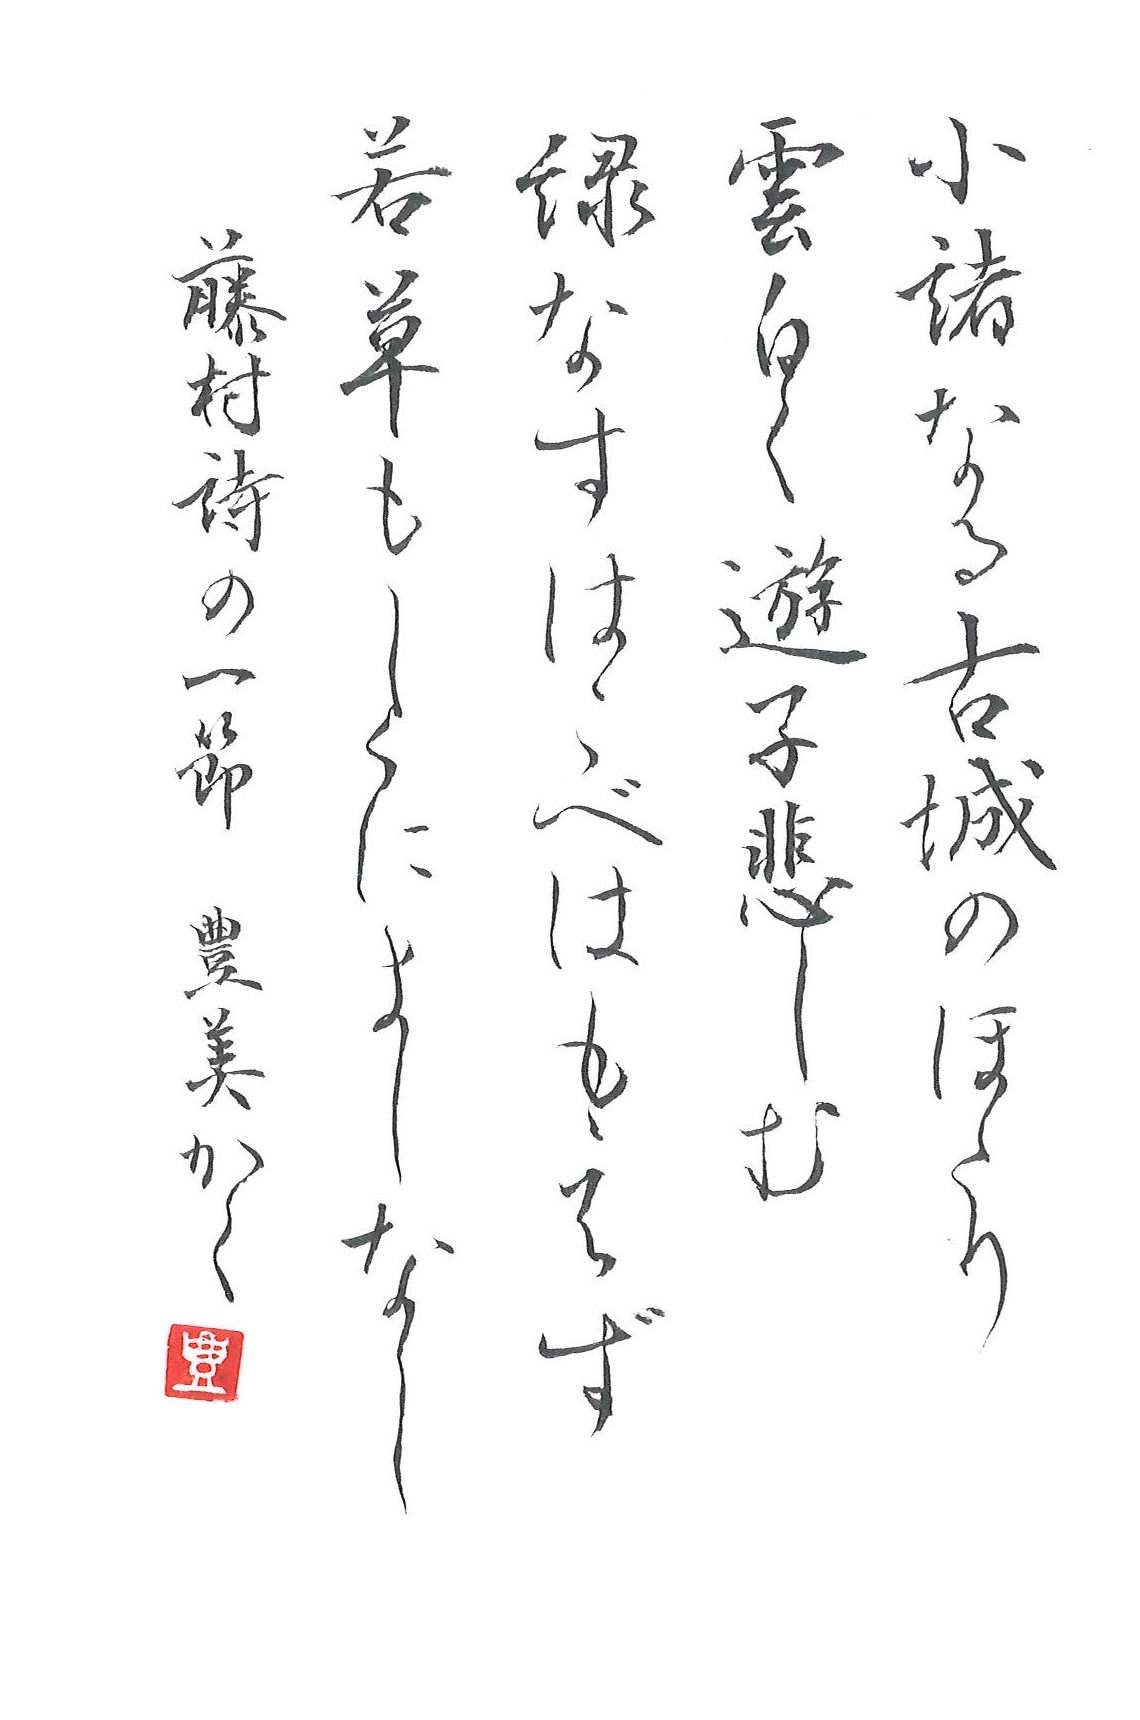 小諸なる古城のほとり
雲白く遊子悲しむ
緑なすはこべはもえず
若草もしくによしなし
藤村詩の一節 豊美かく
豊